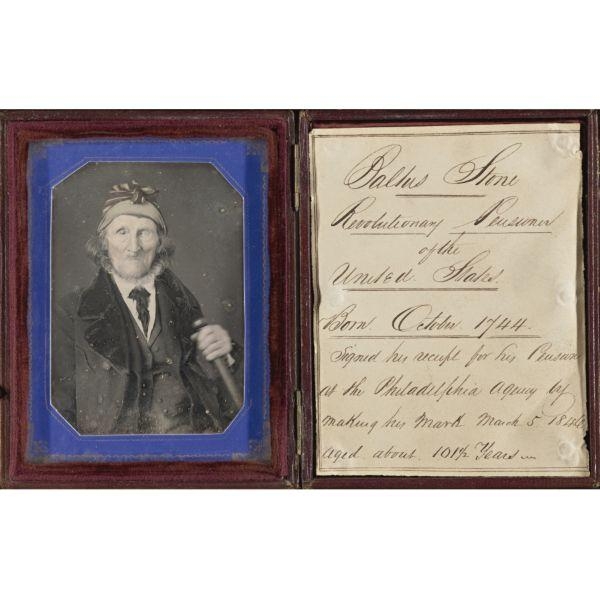 Baltus Stone
Revolutionary Pensioner
of the
United States.
Born October 1744.
Signed his receipt for his Pension
at the Philadelphia Agency by
making his Mark March 5 1846
aged about 101½ Years